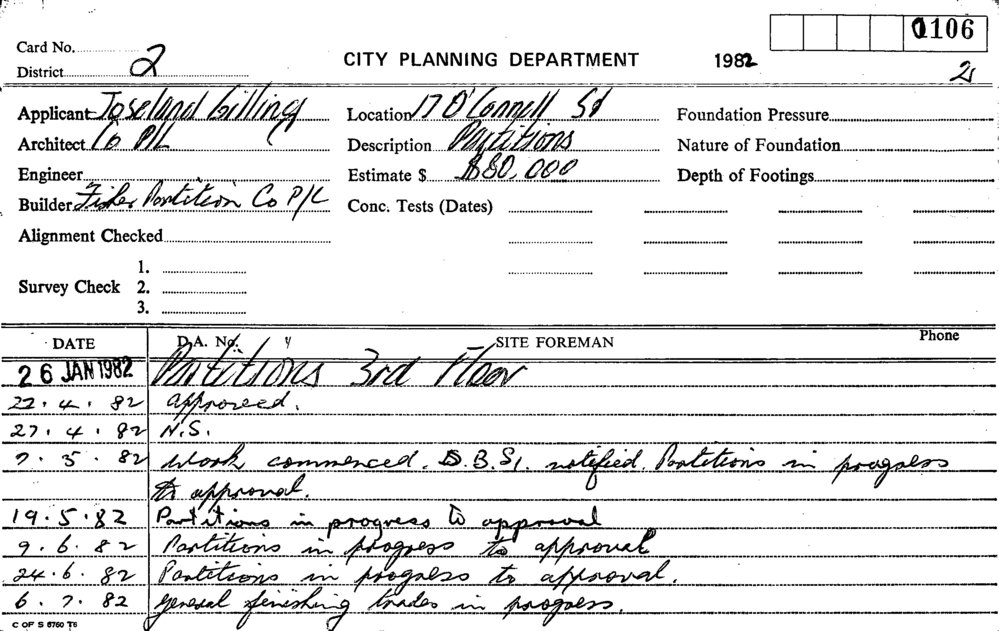 1106
Card No.
District 2
CITY PLANNING DEPARTMENT
1982
2
Applicant Joseland Gilling
Location 17 O'Connell St
Foundation Pressure
Architect Co P/L
Description Partitions
Nature of Foundation
Engineer
Estimate $ $80,000
Depth of Footings
Builder Fisher Partition Co P/L
Conc. Tests (Dates)
Alignment Checked
Survey Check
1.
2.
3.
DATE
D.A. No.
SITE FOREMAN
Phone
26 JAN 1982 Partitions 3rd Floor
22.4.82 approved.
27.4.82 N.S.
7.5.82 Work commenced. D.B.S. notified. Partitions in progress
to approval.
19.5.82 Partitions in progress to approval
9.6.82 Partitions in progress to approval
24.6.82 Partitions in progress to approval.
6.7.82 general finishing trades in progress.
C OF S 6760 T6